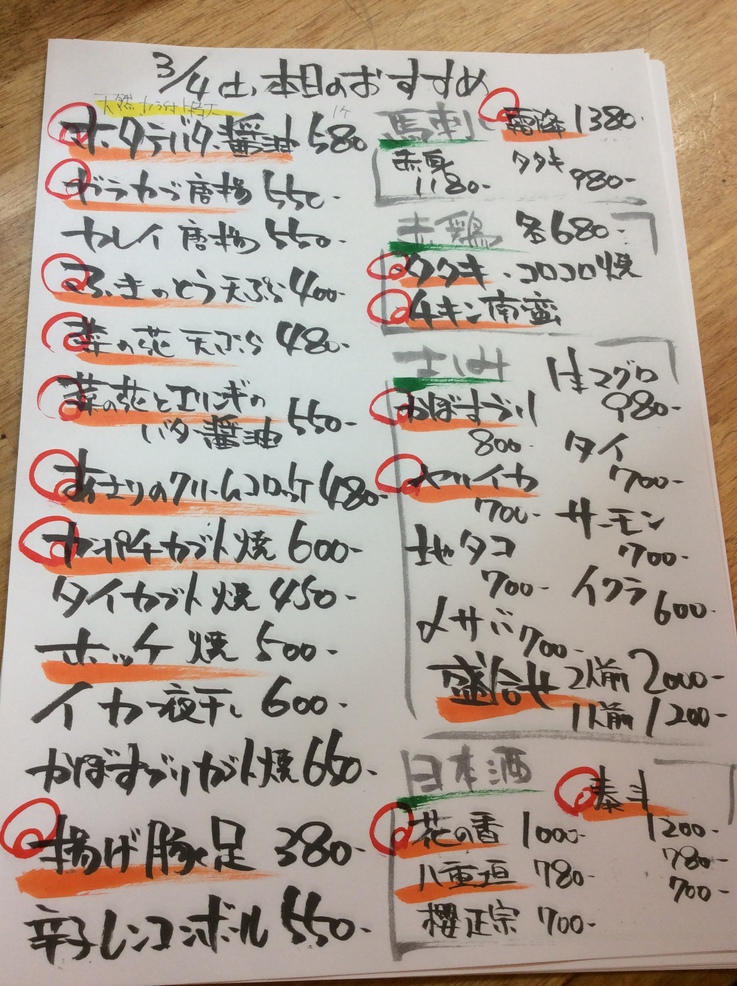 3/4(土)本日のおすすめ
天然
1ケ
ホタテバター醤油 580
ガラカブ唐揚 550-
カレイ唐揚 550-
ふきのとう天ぷら 400-
菜の花天ぷら 480-
菜の花とエリンギの
バター醤油 550-
あさりのクリームコロッケ 480-
カンパチカブト焼 600-
タイカブト焼 450-
ホッケ焼 500-
イカ一夜干し 600-
かぼすブリカブト焼 650-
揚げ豚足 380-
辛子レンコンボール 550-
馬刺し 霜降 1380-
赤身 1180-
タタキ 980-
赤鶏 各680-
タタキ・コロコロ焼
チキン南蛮
さしみ
生マグロ
980-
かぼすブリ
800-
タイ
700-
ヤリイカ
700-
サーモン
700-
地タコ
700-
イクラ
600-
〆サバ 700-
盛合せ 2人前 2000-
1人前 1200-
日本酒
泰斗
花の香 1000- 1200-
八重垣 780- 780-
櫻正宗 700- 700-